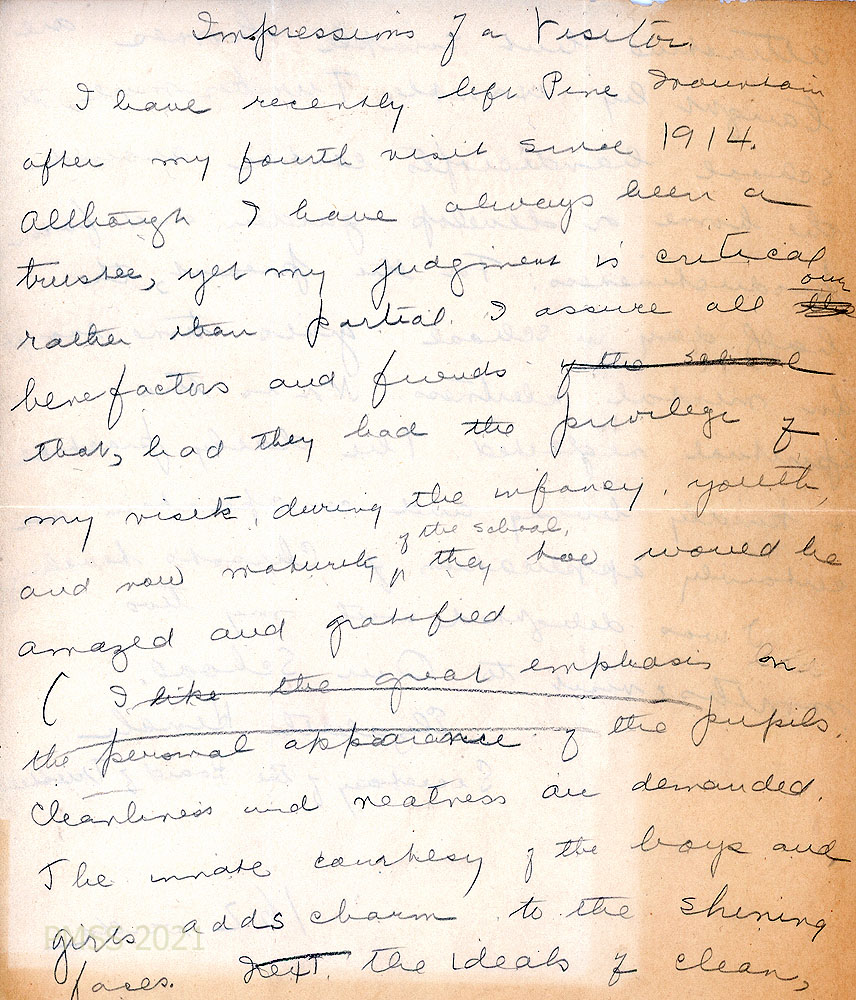 Impressions of a Visitor.
I have recently left Pine Mountain
after my fourth visit since 1914.
Although I have always been a
trustee, yet my judgment is critical
our
rather than partial. I assure all the
benefactors and friends of the school
that, had they had the privilege of
my visits, during the infancy, youth,
of the school,
and now maturity, they too would be
amazed and gratified
( I like the great emphasis on
the personal appearance of the pupils.
Cleanliness and neatness are demanded.
The innate courtesy of the boys and
girls adds charm to the shining
faces. Next, the ideals of clean,
PMSS 2021